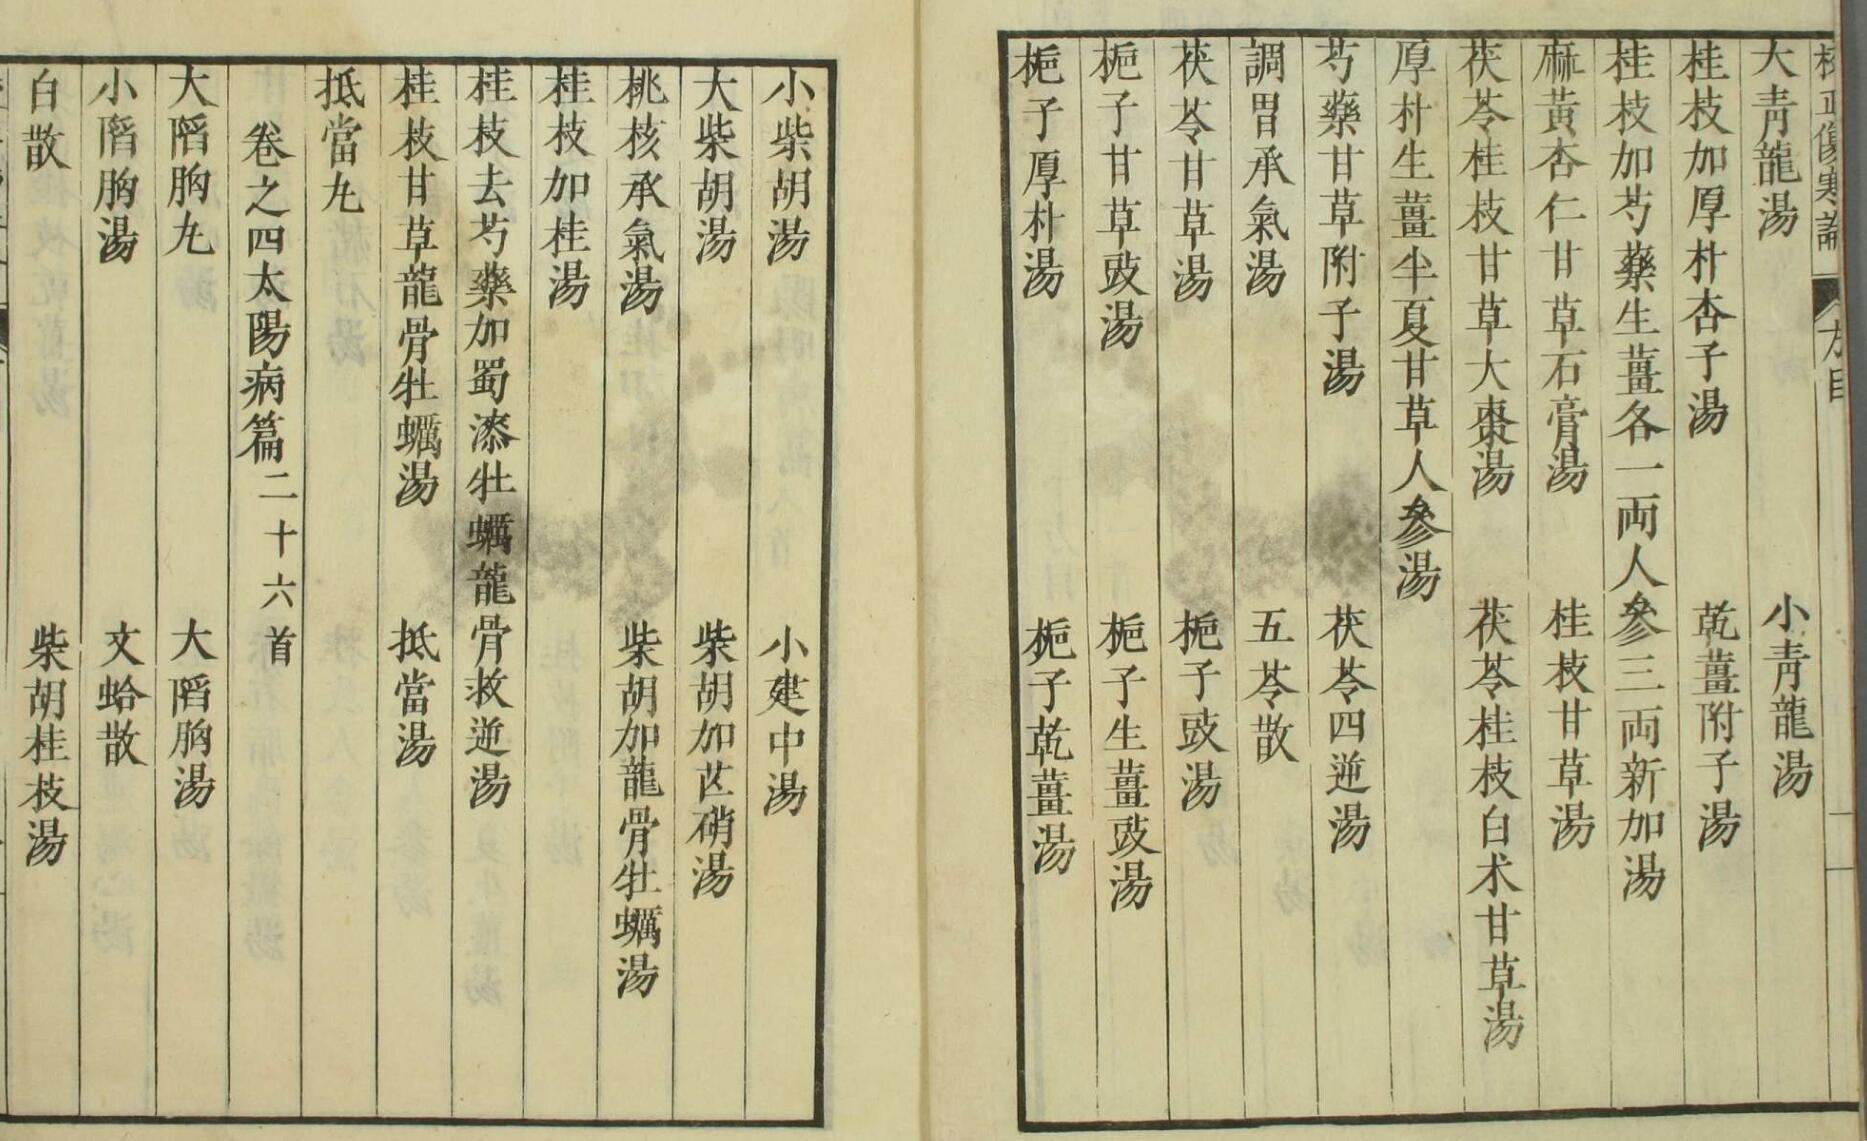 校正傷寒論 方目
大青龍湯 小青龍湯
桂枝加厚朴杏子湯 乾薑附子湯
桂枝加芍藥生薑各一両人參三両新加湯
麻黃杏仁甘草石膏湯 桂枝甘草湯
茯苓桂枝甘草大棗湯 茯苓桂枝白朮甘草湯
厚朴生薑半夏甘草人參湯
芍藥甘草附子湯 茯苓四逆湯
調胃承氣湯 五苓散
茯苓甘草湯 梔子豉湯
梔子甘草豉湯 梔子生薑豉湯
梔子厚朴湯 梔子乾薑湯
小柴胡湯 小建中湯
大柴胡湯 柴胡加芒硝湯
桃核承氣湯 柴胡加龍骨牡蠣湯
桂枝加桂湯
桂枝去芍藥加蜀漆牡蠣龍骨救逆湯
桂枝甘草龍骨牡蠣湯 抵當湯
抵當丸
卷之四太陽病篇二十六首
大陷胸丸 大陷胸湯
小陷胸湯 文蛤散
白散 柴胡桂枝湯